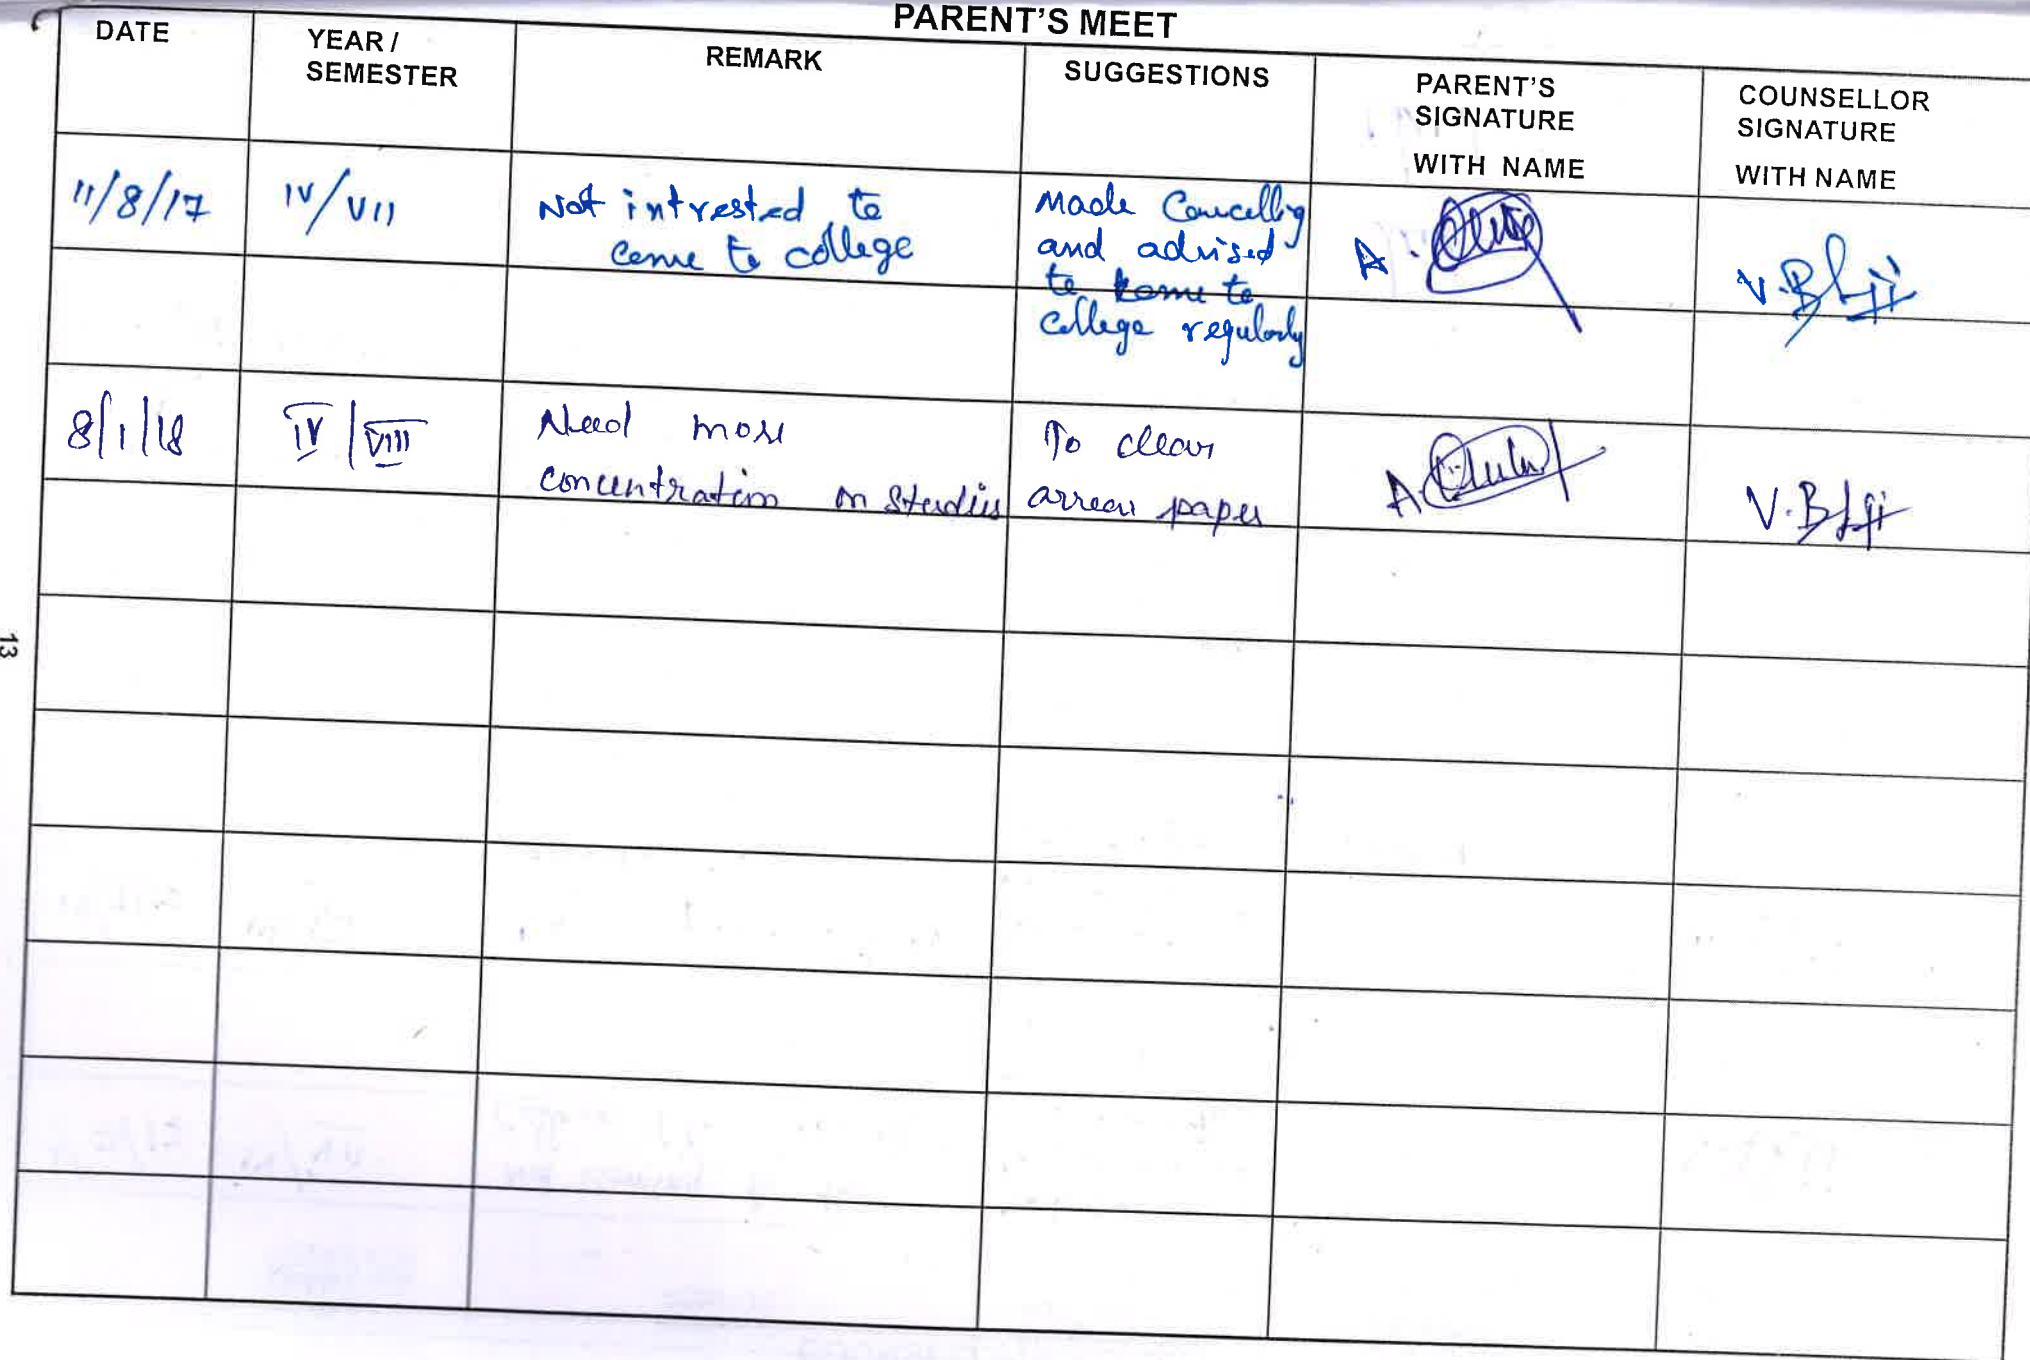 PARENT'S MEET
DATE
YEAR /
SEMESTER
REMARK
SUGGESTIONS
PARENT'S
SIGNATURE
WITH NAME
COUNSELLOR
SIGNATURE
WITH NAME
11/8/17
IV/VII
Not intrested to
come to college
Made Councelling
and advised
to come to
college regularly
A.
V.B
8/1/18
IV/VIII
Need more
concentration on studies
To clear
arrear paper
A.
V.B
13